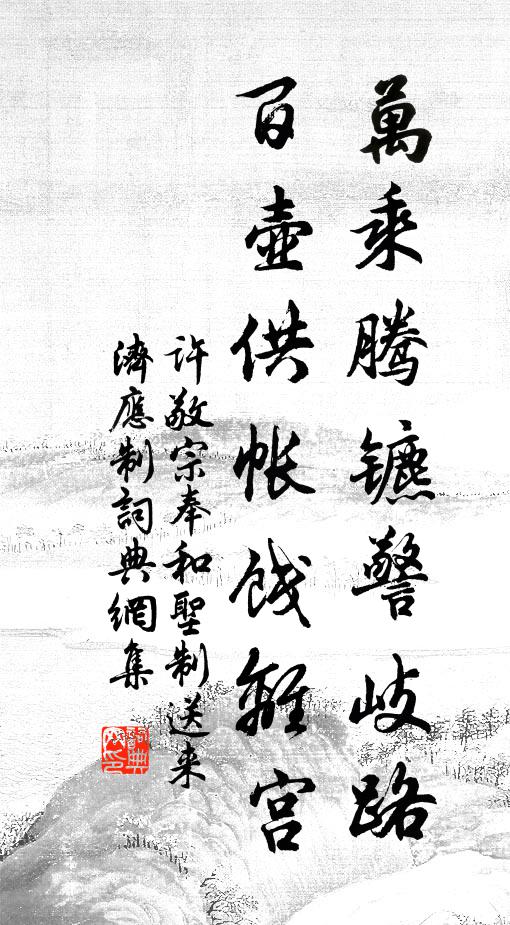 萬乘腾镳警岐路
百壺供帐饯離宫
许敬宗奉和聖制送来
濟應制詞典網集